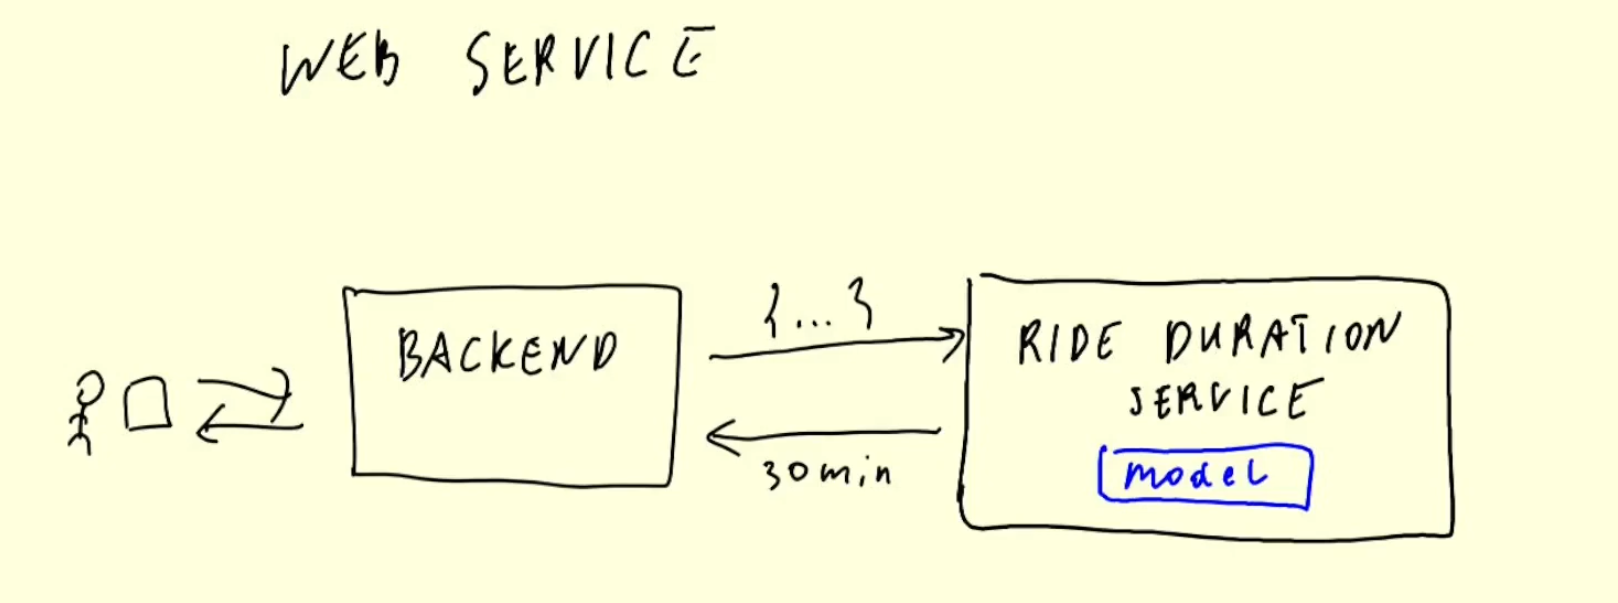 WEB SERVICE
BACKEND
{...}
30min
RIDE DURATION
SERVICE
model